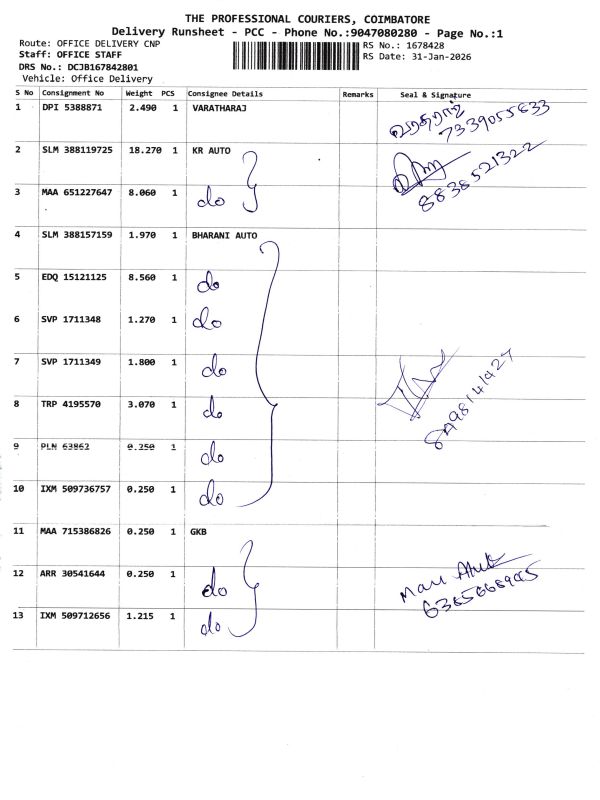 THE PROFESSIONAL COURIERS, COIMBATORE
Delivery Runsheet - PCC - Phone No.:9047080280 - Page No.:1
Route: OFFICE DELIVERY CNP
Staff: OFFICE STAFF
DRS No.: DCJB167842801
Vehicle: Office Delivery
RS No.: 1678428
RS Date: 31-Jan-2026
S No Consignment No Weight PCS Consignee Details Remarks Seal & Signature
1 DPI 5388871 2.490 1 VARATHARAJ வரதராஜ்
7339055633
2 SLM 388119725 18.270 1 KR AUTO
8838521322
3 MAA 651227647 8.060 1 do
4 SLM 388157159 1.970 1 BHARANI AUTO
5 EDQ 15121125 8.560 1 do
6 SVP 1711348 1.270 1 do
7 SVP 1711349 1.800 1 do
8 TRP 4195570 3.070 1 do
9 PLN 63862 0.250 1 do
10 IXM 509736757 0.250 1 do
11 MAA 715386826 0.250 1 GKB
12 ARR 30541644 0.250 1 do
13 IXM 509712656 1.215 1 do